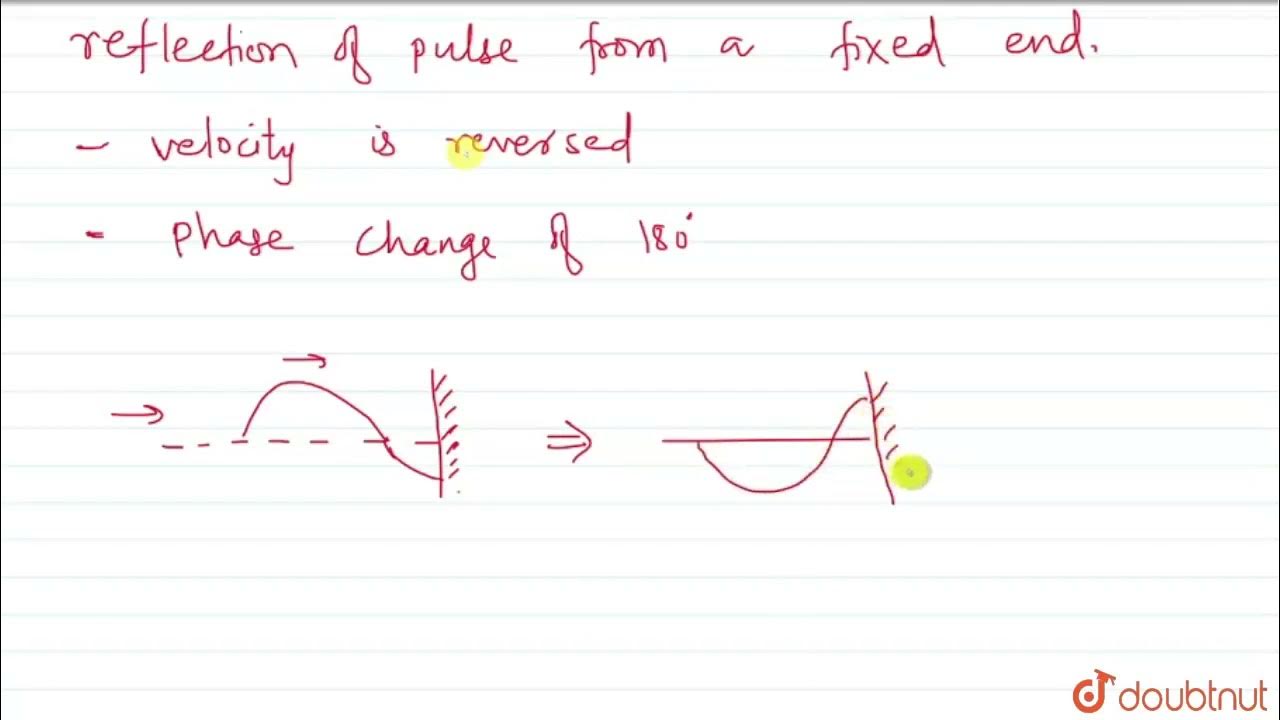 reflection of pulse from a fixed end.
- velocity is reversed
- Phase Change of 180°
doubtnut